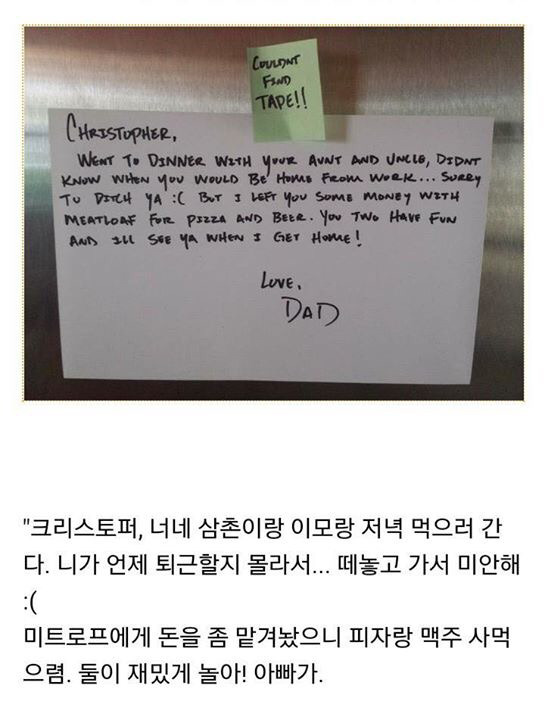 COULDNT
FIND
TAPE!!
CHRISTOPHER,
WENT TO DINNER WITH YOUR AUNT AND UNCLE, DIDNT
KNOW WHEN YOU WOULD BE HOME FROM WORK... SORRY
TO DITCH YA :( BUT I LEFT YOU SOME MONEY WITH
MEATLOAF FOR PIZZA AND BEER. YOU TWO HAVE FUN
AND ILL SEE YA WHEN I GET HOME!
LOVE,
DAD
"크리스토퍼, 너네 삼촌이랑 이모랑 저녁 먹으러 간
다. 니가 언제 퇴근할지 몰라서... 떼놓고 가서 미안해
:(
미트로프에게 돈을 좀 맡겨놨으니 피자랑 맥주 사먹
으렴. 둘이 재밌게 놀아! 아빠가.